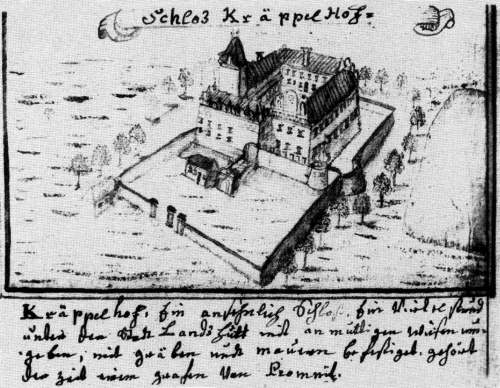 Schloß Kräppel Hof=
Kräppelhof, Ein ansehnlich Schloß, Ein Viertel stund
unter der Stadt Landshutt mit anmuttigen Wiesen um-
geben, mit gräben und mauern befestiget, gehört
der zeit einem grafen Von Promnitz.